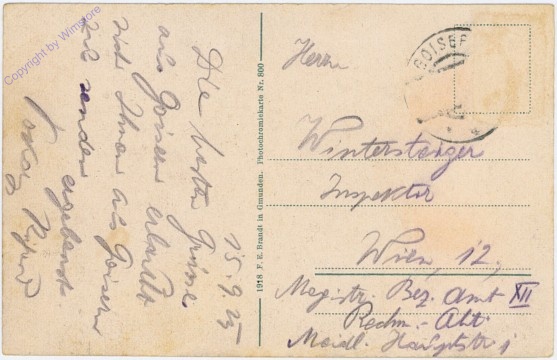 15.9.25
Die besten Grüsse
aus Goisern erlaubt
sich Ihnen aus Goisern
zu senden
ergebenst
1918 F. E. Brandt in Gmunden. Photochromiekarte Nr. 800
GOISER
Herrn
Winterstanger
Inspektor
Wien, 12,
Magistr. Bez. Amt XII
Rechn.-Abt
Meidl. Hauptstr
Copyright by Wimstore